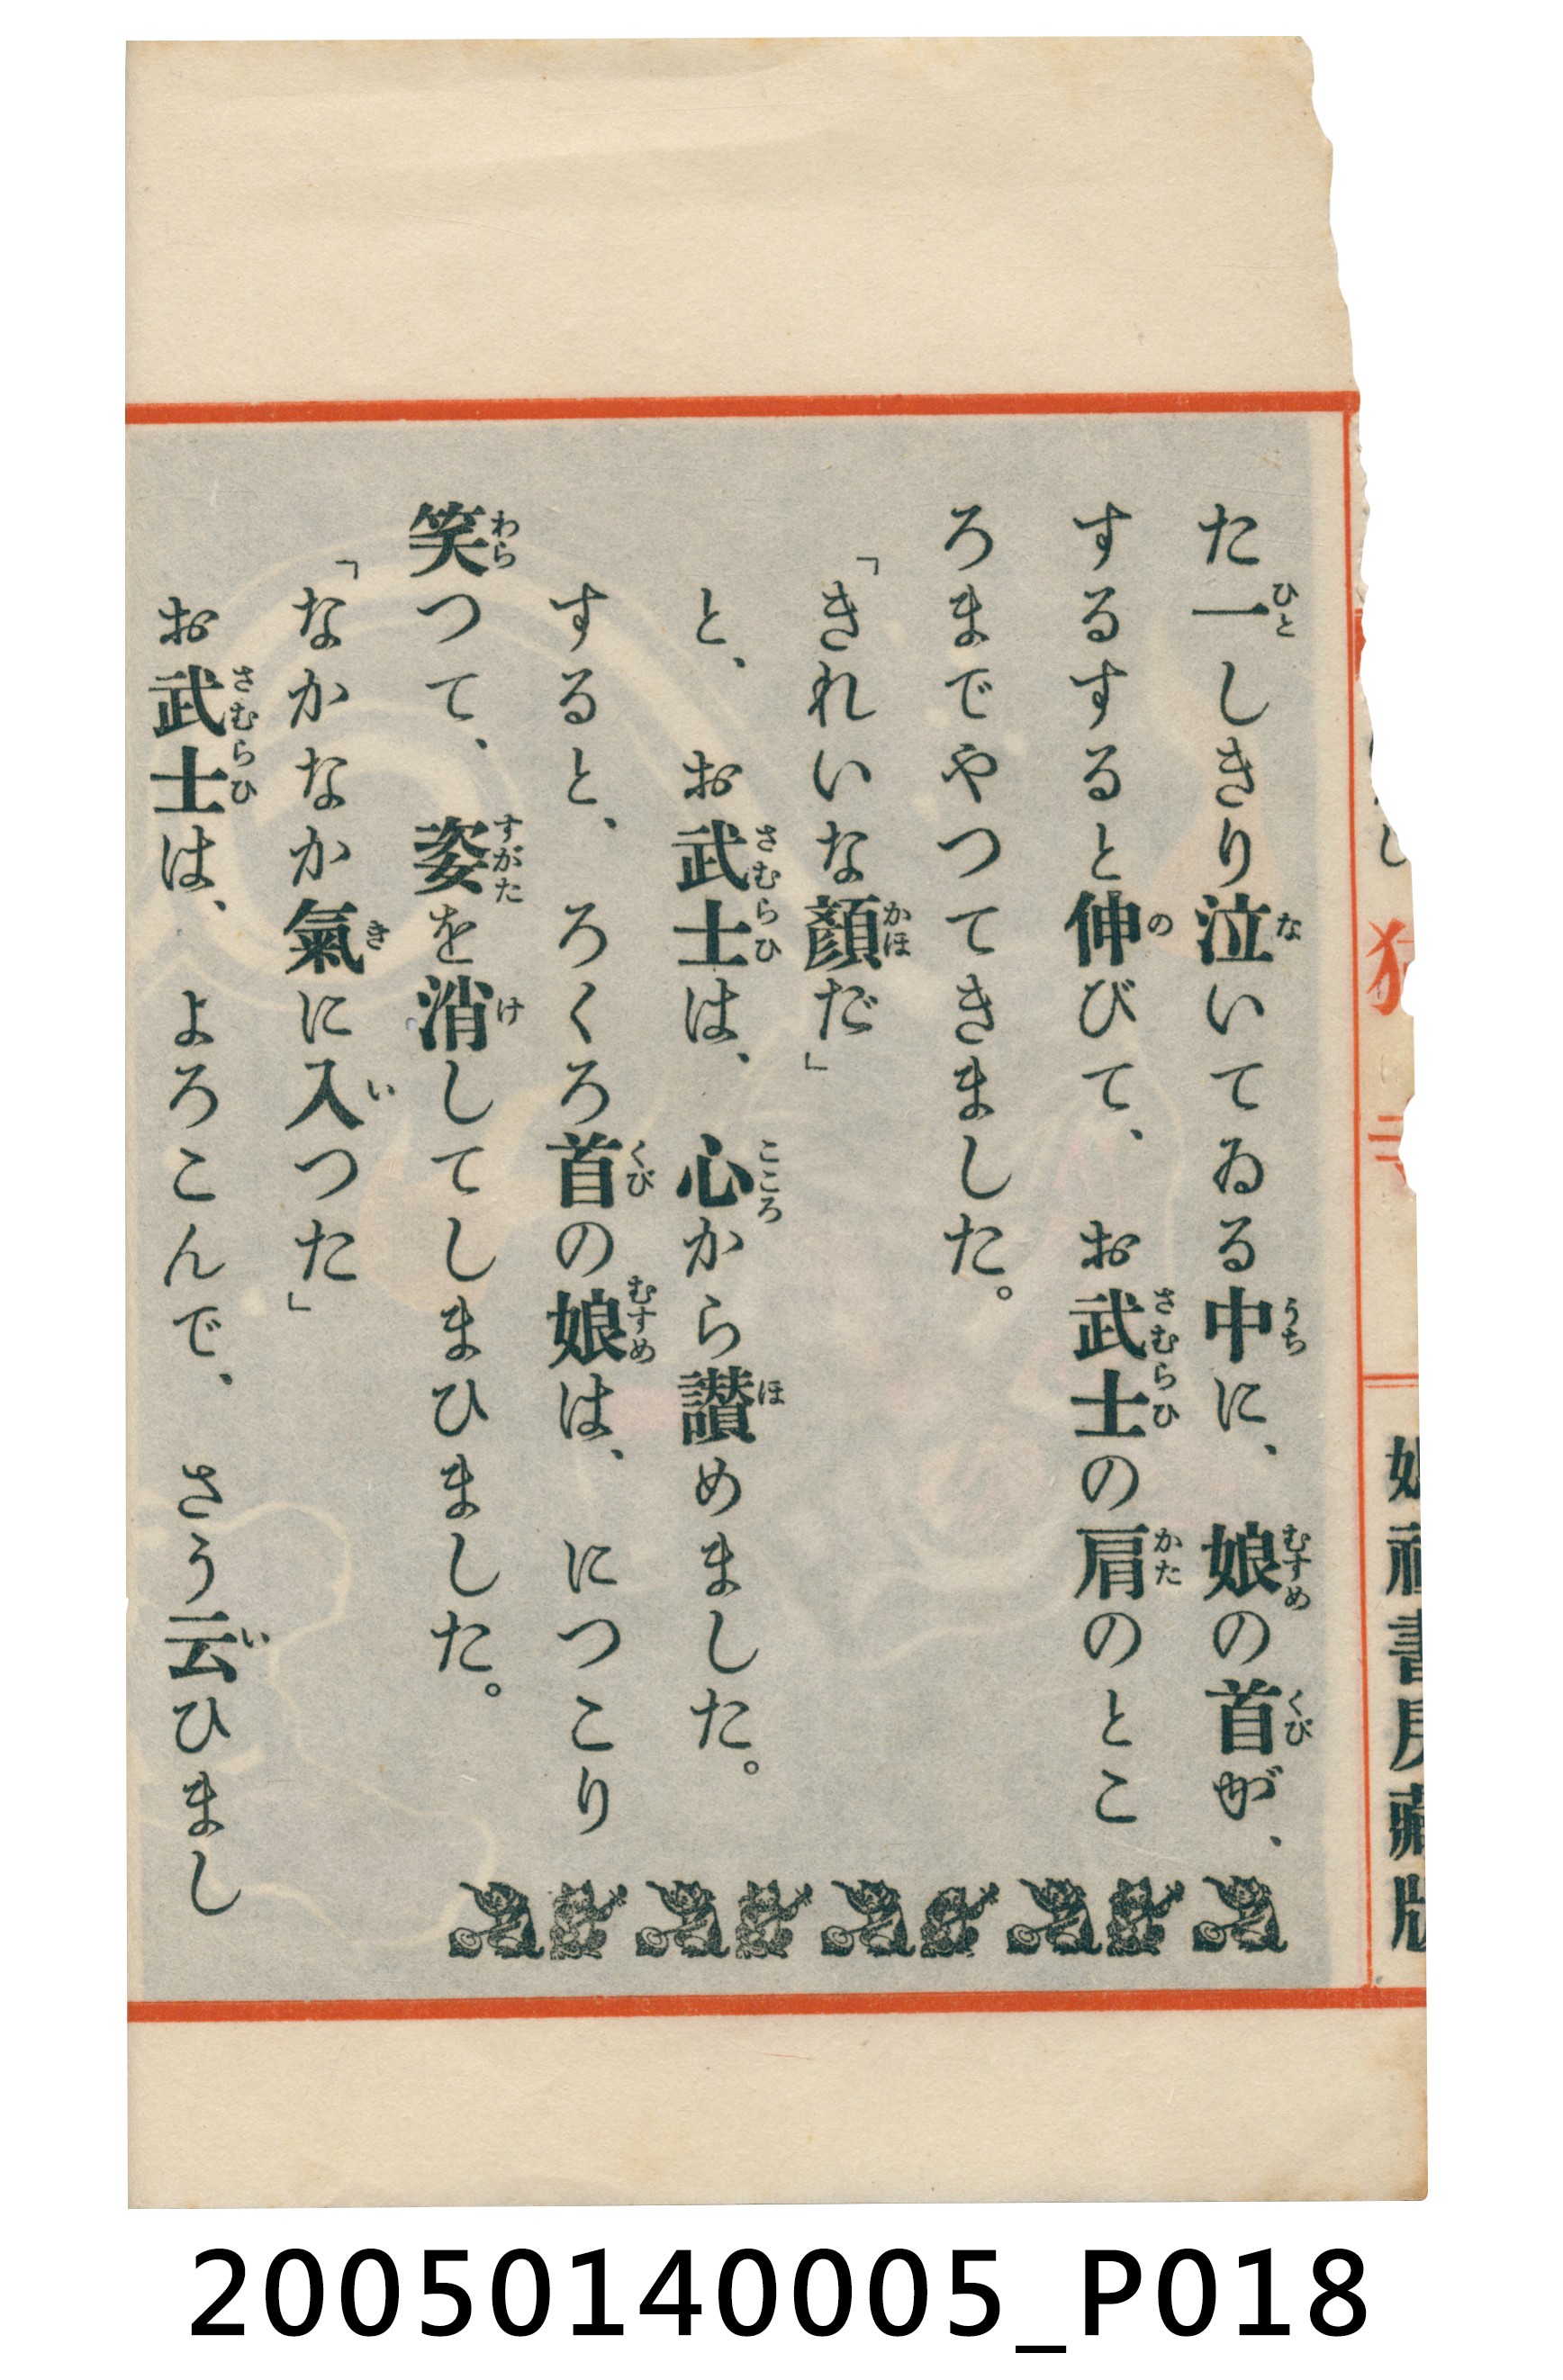 た一しきり泣いてゐる中に、娘の首が、
するすると伸びて、お武士の肩のとこ
ろまでやつてきました。
「きれいな顏だ」
と、お武士は、心から讃めました。
すると、ろくろ首の娘は、につこり
笑つて、姿を消してしまひました。
「なかなか氣に入つた」
お武士は、よろこんで、さう云ひまし
書房藏版
20050140005_P018